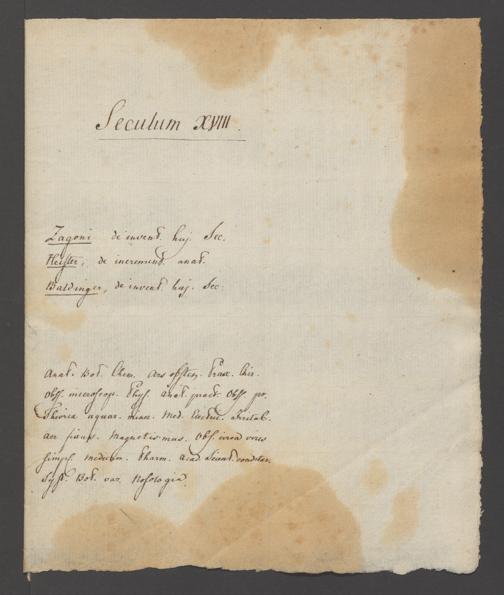 Seculum XVIII.
Zagoni de invent. huj. Sec.
Heister, de increment. anat.
Baldinger, de invent. huj. Sec.
Anat. Bot. Chem. Ars obstetr. Prax. Chir.
Obs. microscop. Phys. anat. pract. Obs.
aquar. miner. Med. Electric. Irritab.
Magnetismus. Obs. vires
simpl. medicam. Pharm. Acad. Scient. conditae.
Syst. Bot. var. Nosologia.